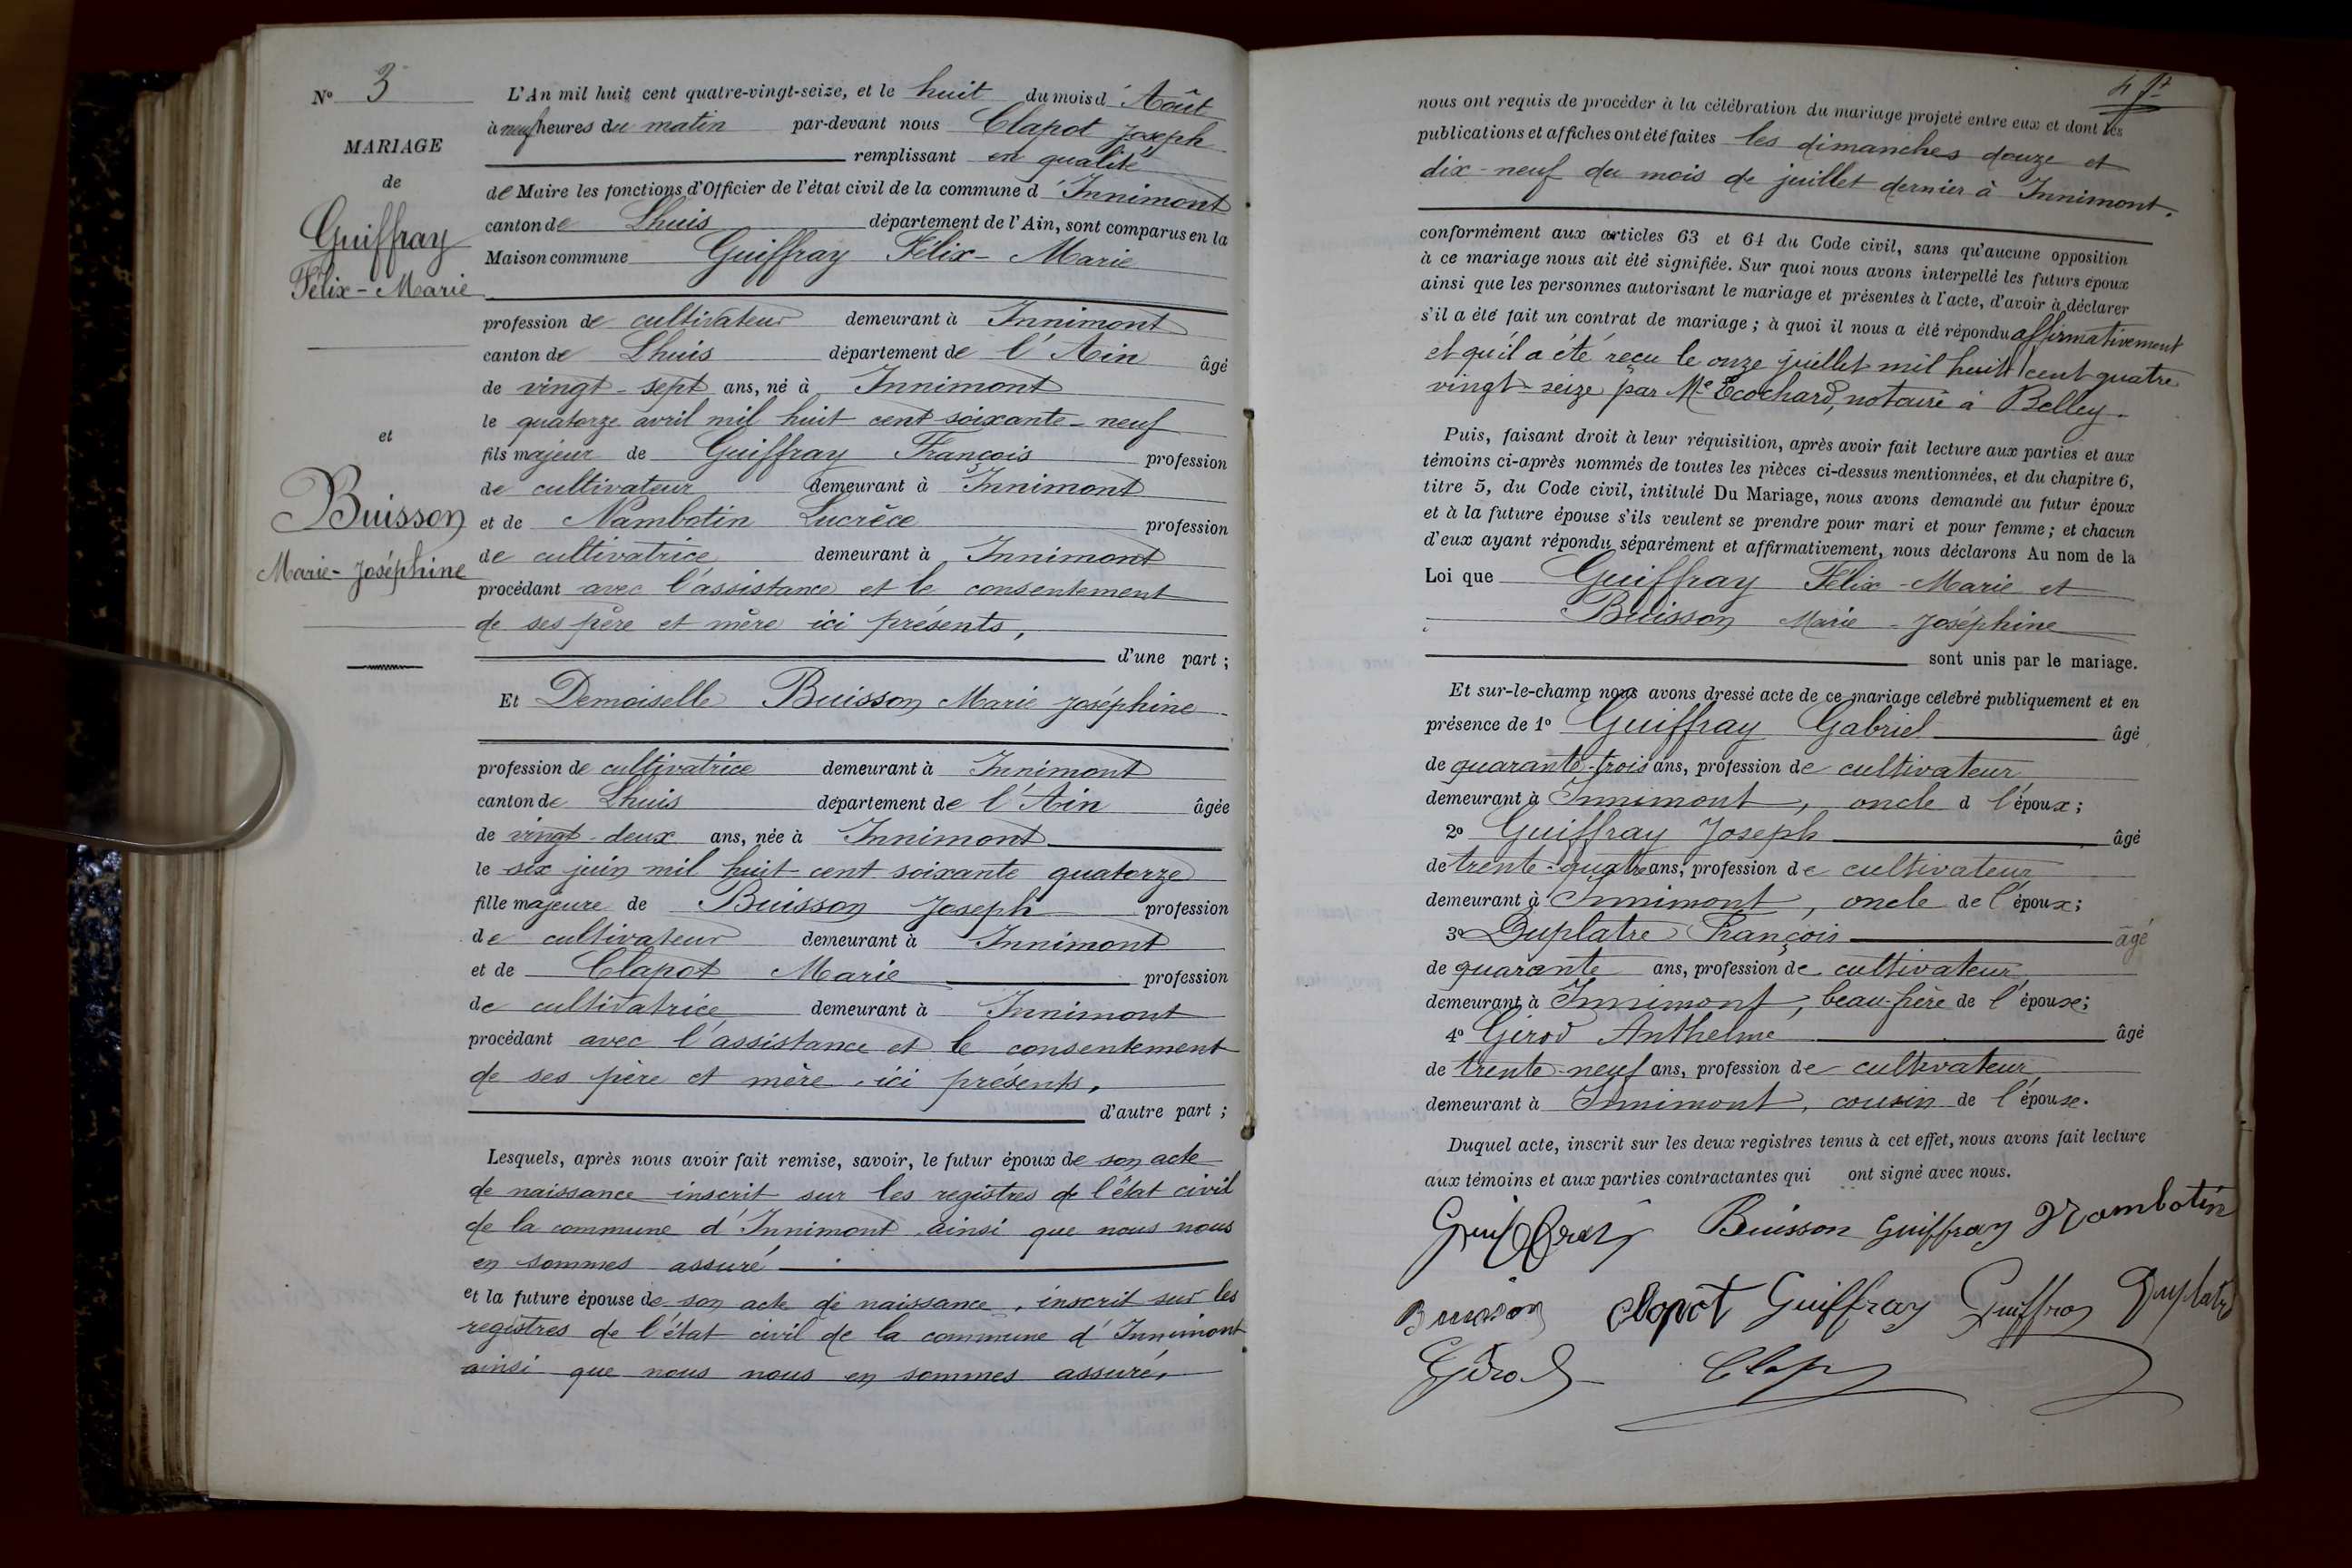 N° 3
MARIAGE
de
Guiffray
Félix-Marie
et
Buisson
Marie-Joséphine
L'An mil huit cent quatre-vingt-seize, et le huit du mois d'Août
à neuf heures du matin par-devant nous Clapot Joseph
remplissant en qualité
de Maire les fonctions d'Officier de l'état civil de la commune d'Innimont
canton de Lhuis département de l'Ain, sont comparus en la
Maison commune Guiffray Félix-Marie
profession de cultivateur demeurant à Innimont
canton de Lhuis département de l'Ain âgé
de vingt-sept ans, né à Innimont
le quatorze avril mil huit cent soixante-neuf
fils majeur de Guiffray François profession
de cultivateur demeurant à Innimont
et de Nambotin Lucrèce profession
de cultivatrice demeurant à Innimont
procédant avec l'assistance et le consentement
de ses père et mère ici présents,
d'une part ;
Et Demoiselle Buisson Marie Joséphine
profession de cultivatrice demeurant à Innimont
canton de Lhuis département de l'Ain âgée
de vingt-deux ans, née à Innimont
le six juin mil huit cent soixante quatorze
fille majeure de Buisson Joseph profession
de cultivateur demeurant à Innimont
et de Clapot Marie profession
de cultivatrice demeurant à Innimont
procédant avec l'assistance et le consentement
de ses père et mère ici présents,
d'autre part ;
Lesquels, après nous avoir fait remise, savoir, le futur époux de son acte
de naissance inscrit sur les registres de l'état civil
de la commune d'Innimont ainsi que nous nous
en sommes assuré
et la future épouse de son acte de naissance, inscrit sur les
registres de l'état civil de la commune d'Innimont
ainsi que nous nous en sommes assuré,
nous ont requis de procéder à la célébration du mariage projeté entre eux et dont les
publications et affiches ont été faites les dimanches douze et
dix-neuf du mois de juillet dernier à Innimont.
conformément aux articles 63 et 64 du Code civil, sans qu'aucune opposition
à ce mariage nous ait été signifiée. Sur quoi nous avons interpellé les futurs époux
ainsi que les personnes autorisant le mariage et présentes à l'acte, d'avoir à déclarer
s'il a été fait un contrat de mariage ; à quoi il nous a été répondu affirmativement
et qu'il a été reçu le onze juillet mil huit cent quatre
vingt-seize par Me Ecochard, notaire à Belley.
Puis, faisant droit à leur réquisition, après avoir fait lecture aux parties et aux
témoins ci-après nommés de toutes les pièces ci-dessus mentionnées, et du chapitre 6,
titre 5, du Code civil, intitulé Du Mariage, nous avons demandé au futur époux
et à la future épouse s'ils veulent se prendre pour mari et pour femme ; et chacun
d'eux ayant répondu séparément et affirmativement, nous déclarons Au nom de la
Loi que Guiffray Félix-Marie et
Buisson Marie-Joséphine
sont unis par le mariage.
Et sur-le-champ nous avons dressé acte de ce mariage célébré publiquement et en
présence de 1° Guiffray Gabriel âgé
de quarante-trois ans, profession de cultivateur
demeurant à Innimont, oncle d l'époux ;
2° Guiffray Joseph âgé
de trente-quatre ans, profession de cultivateur
demeurant à Innimont, oncle de l'époux ;
3° Duplatre François âgé
de quarante ans, profession de cultivateur
demeurant à Innimont, beau-frère de l'épouse ;
4° Girod Anthelme âgé
de trente-neuf ans, profession de cultivateur
demeurant à Innimont, cousin de l'épouse.
Duquel acte, inscrit sur les deux registres tenus à cet effet, nous avons fait lecture
aux témoins et aux parties contractantes qui ont signé avec nous.
Guiffray Buisson Guiffray Nambotin
Buisson Clapot Guiffray Guiffray Duplatre
Girod Clapot